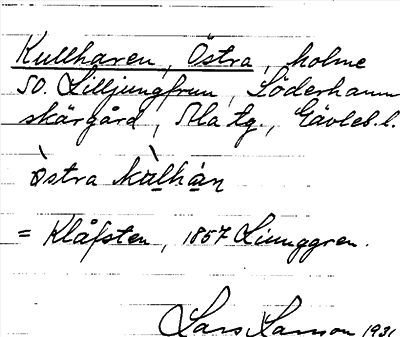 Kullharen, Östra, holme
SO. Lilljungfrun, Söderhamn
skärgård, Ala tg., Gävleb. l.
östra kùlhàn
= Klåfsten, 1857 Ljunggren.
Lars Larsson 1931